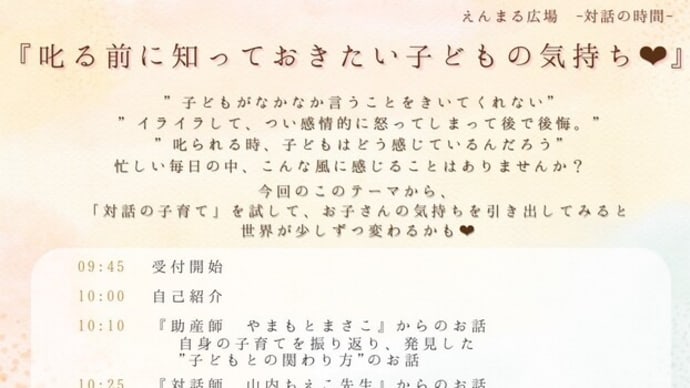 えんまる広場　-対話の時間-
『叱る前に知っておきたい子どもの気持ち❤』
”子どもがなかなか言うことをきいてくれない”
”イライラして、つい感情的に怒ってしまって後で後悔。”
”叱られる時、子どもはどう感じているんだろう”
忙しい毎日の中、こんな風に感じることはありませんか？
今回のこのテーマから、
「対話の子育て」を試して、お子さんの気持ちを引き出してみると
世界が少しずつ変わるかも❤
09:45 受付開始
10:00 自己紹介
10:10 『助産師　やまもとまさこ』からのお話
自身の子育てを振り返り、発見した
”子どもとの関わり方”のお話
10:25 『対話師　山内ちえこ先生』からのお話